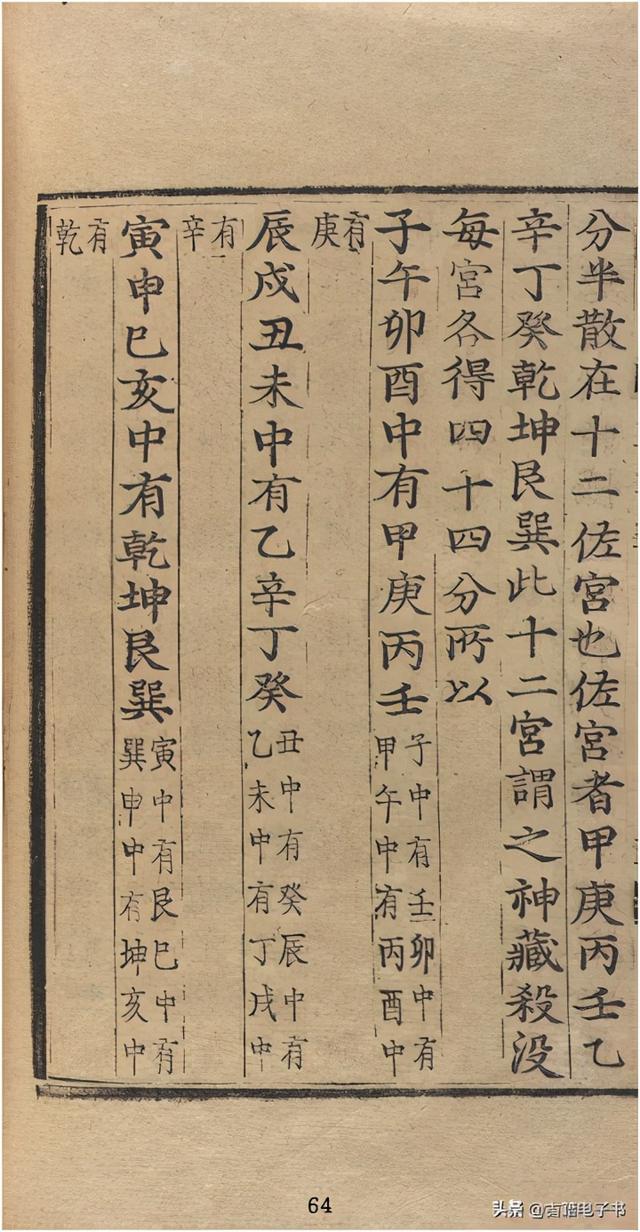 分半散在十二佐宮也佐宮者甲庚丙壬乙
辛丁癸乾坤艮巽此十二宮謂之神藏殺没
每宮各得四十四分所以
子午卯酉中有甲庚丙壬子中有壬卯中有
甲午中有丙酉中
有
庚
辰戌丑未中有乙辛丁癸丑中有癸辰中有
乙未中有丁戌中
有
辛
寅申巳亥中有乾坤艮巽寅中有艮巳中有
巽申中有坤亥中
有
乾
64
头条 @有猫电子书